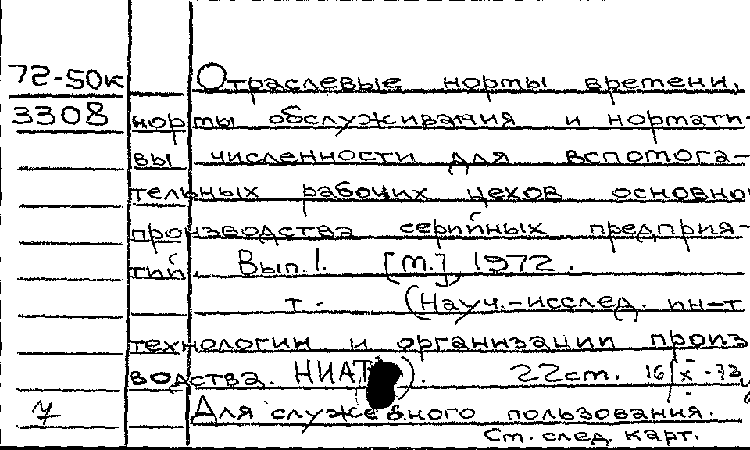 72-50к Отраслевые нормы времени,
3308 нормы обслуживания и нормати-
вы численности для вспомога-
тельных рабочих цехов основно
производства серийных предприя-
тий. Вып. 1. [М.], 1972.
т. (Науч.-исслед. ин-т
технологии и организации произ
водства. НИАТ). 22см. 16/X-72
Для служебного пользования.
Ст. след. карт.